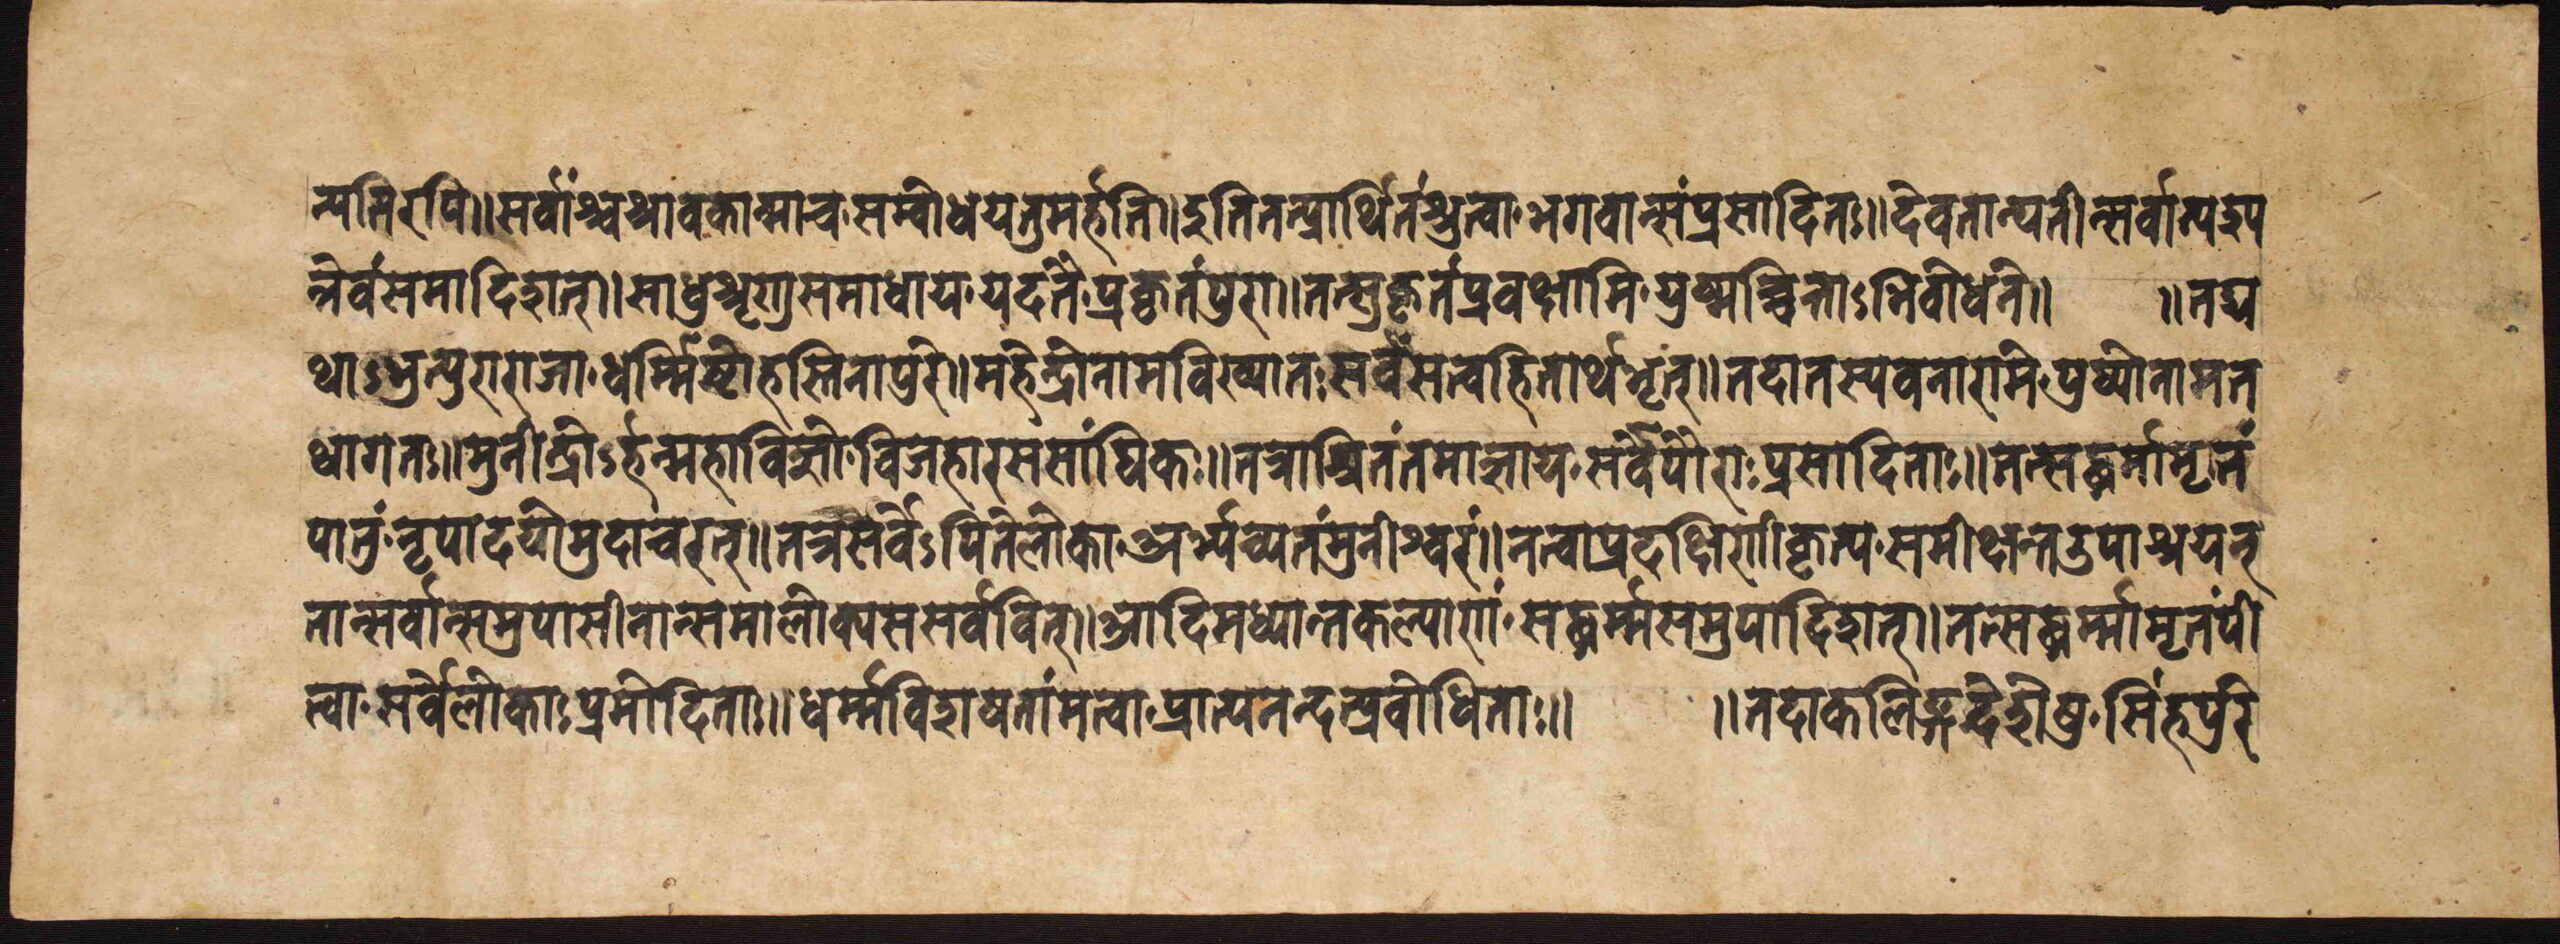 त्यमिरपि॥सर्वांश्चश्रावकान्माच॰सम्वोधयतुमर्हति॥इतितत्प्रार्थितंश्रुत्वा॰भगवान्संप्रसादितः॥देवतान्यतीन्सर्वान्पश्य
न्नेवंसमादिशत्॥साधुशृणुसमाधाय॰यदनेनप्रकृतंपुरा॥तत्सुकृतंप्रवक्षामि॰युष्मच्चित्ताऽभिवोधने॥ ॥तद्य
थाऽभुत्पुराराजा॰धर्म्मिष्टोहस्तिनापुरे॥महेन्द्रोनामविख्यातःसर्वसत्वहितार्थभृत्॥तदातस्यवनारामे॰पुष्योनामत
थागतः॥मुनीन्द्रोऽर्हन्महाविज्ञो॰विजहारससांघिकः॥तत्राश्रितंतमाज्ञाय॰सर्वेपौराःप्रसादिताः॥तत्सद्धर्मामृतं
पातुं॰नृपादयोमुदाचरत्॥तत्रसर्वेऽपितेलोका॰अभ्यर्च्यतंमुनीश्वरं॥नत्वाप्रदक्षिणीकृत्य॰समीक्षन्तउपाश्रयत्
तान्सर्वान्समुपासीनान्समालोक्यससर्ववित्॥आदिमध्यान्तकल्याणं॰सद्धर्म्मसमुपादिशत्॥तत्सद्धर्म्मामृतंपी
त्वा॰सर्वेलोकाःप्रमोदिताः॥धर्म्मविशेषतांमत्वा॰प्रात्यनन्दत्प्रवोधिताः॥ ॥तदाकलिङ्गदेशेषु॰सिंहपुरे